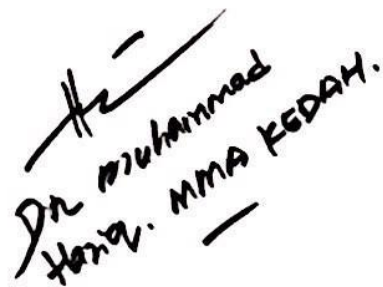 Dr Muhammad
Haziq. MMA KEDAH.